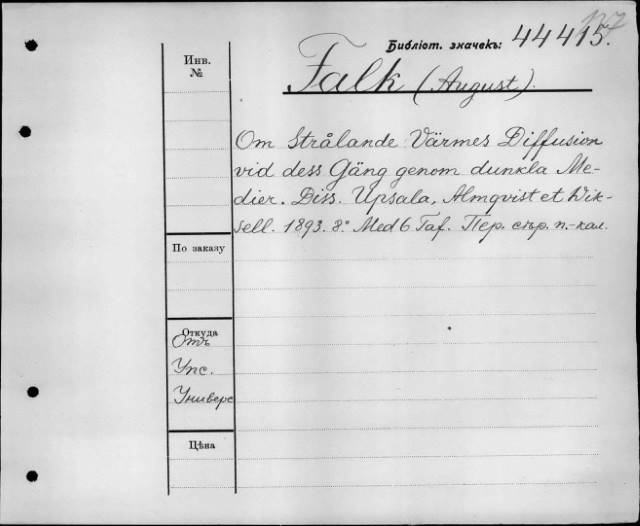 Библіот. значекъ: 44415.
Инв.
№
Falk (August).
Om Strålande Värmes Diffusion
vid dess Gäng genom dunkla Me-
dier. Diss. Upsala, Almqvist et Wik-
sell. 1893. 8.° Med 6 Taf. Пер. сѣр. п.-кал.
По заказу
Откуда
Отъ
Упс.
Универс
Цѣна